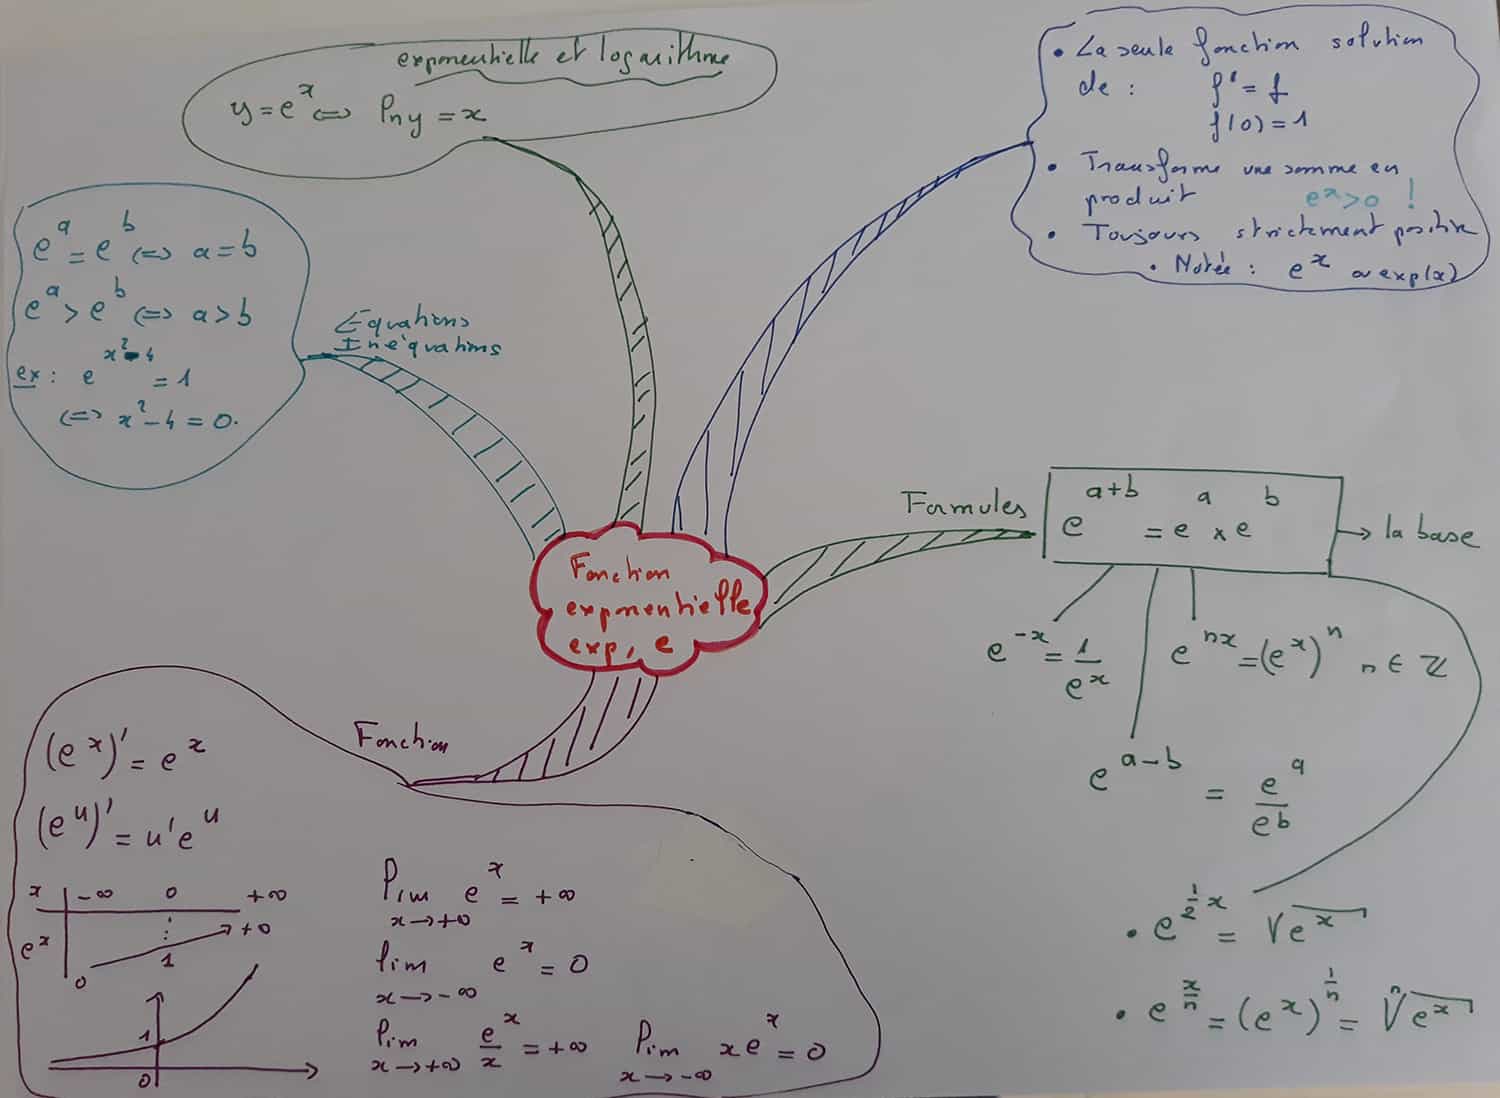 exponentielle et logarithme
y = e^x <=> ln y = x
• La seule fonction solution
de : f' = f
f(0) = 1
• Transforme une somme en
produit e^x > 0 !
• Toujours strictement positive
• Notée : e^x ou exp(x)
e^a = e^b <=> a = b
e^a > e^b <=> a > b
ex : e^(x²-4) = 1
<=> x² - 4 = 0.
Equations
Inéquations
Formules
e^(a+b) = e^a × e^b → la base
e^(-x) = 1/e^x
e^(nx) = (e^x)^n n ∈ ℤ
e^(a-b) = e^a/e^b
• e^(1/2 x) = √e^x
• e^(x/n) = (e^x)^(1/n) = ⁿ√e^x
Fonction
exponentielle
exp, e
Fonction
(e^x)' = e^x
(e^u)' = u'e^u
x -∞ 0 +∞
e^x 0 1 +∞
1
0
lim e^x = +∞
x→+∞
lim e^x = 0
x→-∞
lim e^x/x = +∞
x→+∞
lim xe^x = 0
x→-∞